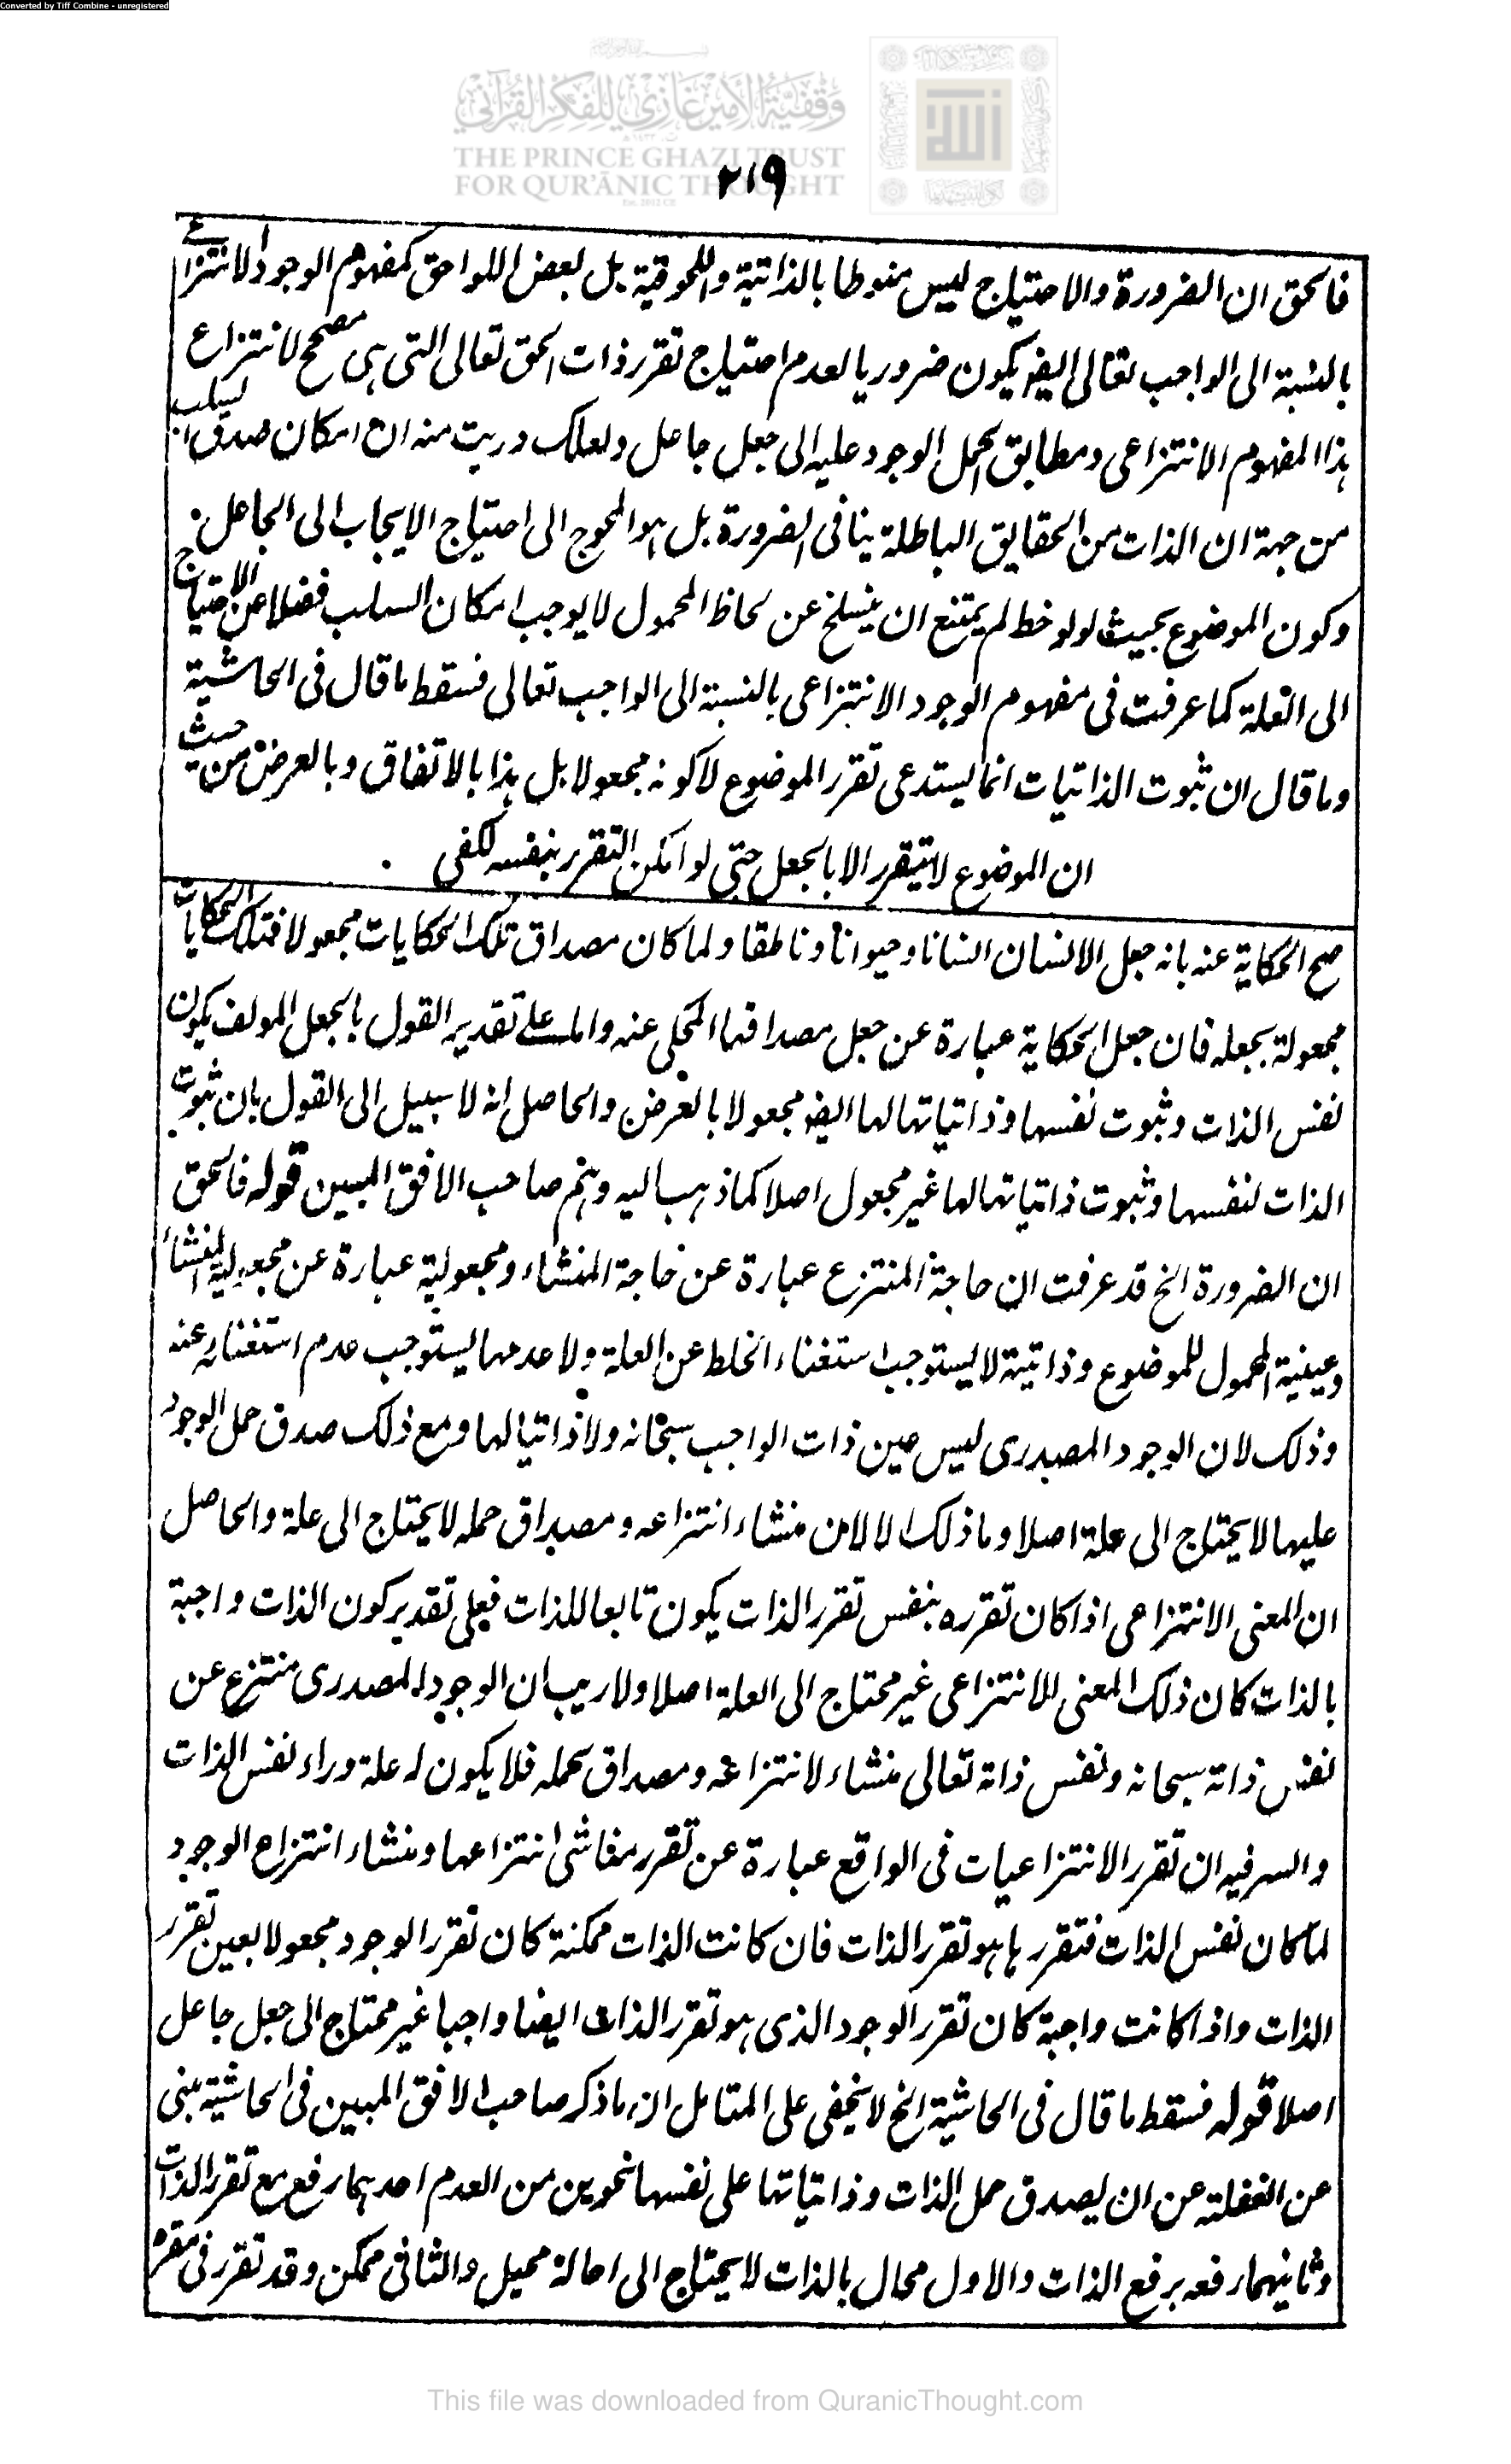 Converted by Tiff Combine - unregistered
وقفية الأمير غازي للفكر القرآني
THE PRINCE GHAZI TRUST
FOR QUR'ĀNIC THOUGHT
٢١٩
فالحق ان الضرورة والاحتياج ليس منوطا بالذاتية واللحوقية بل بعض اللواحق كمفهوم الوجود الانتزاعے
بالنسبة الى الواجب تعالى ايضا يكون ضروريا لعدم احتياج تقرر ذات الحق تعالى التى ہى مصحح لانتزاع
ہذا المفهوم الانتزاعى ومطابق لحمل الوجود عليه الى جعل جاعل ولعلك دريت منه ان امكان صدق السلب
من جهة ان الذات من الحقايق الباطلة ينافى الضرورة بل ہو المحوج الى احتياج الايجاب الى الجاعل
وكون الموضوع بحيث لو لوحظ لم يمتنع ان ينسلخ عن لحاظ المحمول لا يوجب امكان السلب فضلا عن الاحتياج
الى العلة كما عرفت فى مفهوم الوجود الانتزاعى بالنسبة الى الواجب تعالى فسقط ما قال فى الحاشية
وما قال ان ثبوت الذاتيات انما يستدعى تقرر الموضوع لا كونه مجعولا بل ہذا بالاتفاق وبالعرض من حيث
ان الموضوع لا يتقرر الا بالجعل حتى لو امكن التقرر بنفسه لكفى
صح الحكاية عنه بانه جعل الانسان انسانا وحيوانا وناطقا ولما كان مصداق تلك الحكايات مجعولا فتلك الحكايات
مجعولة بجعله فان جعل الحكاية عبارة عن جعل مصداقها المحكى عنه واما على تقدير القول بالجعل المولف يكون
نفس الذات وثبوت نفسها وذاتياتها لها ايضا مجعولا بالعرض والحاصل انه لا سبيل الى القول بان ثبوت
الذات لنفسها وثبوت ذاتياتها لها غير مجعول اصلا كما ذہب اليه وہم صاحب الافق المبين قوله فالحق
ان الضرورة الخ قد عرفت ان حاجة المنتزع عبارة عن حاجة المنشاء ومجعولية عبارة عن مجعولية المنشأ
وعينية المحمول للموضوع وذاتيته لا يستوجب استغناء الخلط عن العلة ولا عدمها يستوجب عدم استغنائه عنه
وذلك لان الوجود المصدرى ليس عين ذات الواجب سبحانه ولا ذاتيا لها ومع ذلك صدق حمل الوجود
عليها لا يحتاج الى علة اصلا وما ذلك الا لان منشاء انتزاعه ومصداق حمله لا يحتاج الى علة والحاصل
ان المعنى الانتزاعى اذا كان تقرره بنفس تقرر الذات يكون تابعا للذات فعلى تقدير كون الذات واجبة
بالذات كان ذلك المعنى الانتزاعى غير محتاج الى العلة اصلا ولا ريب ان الوجود المصدرى منتزع عن
نفس ذاته سبحانه ونفس ذاته تعالى منشاء لانتزاعه ومصداق لحمله فلا يكون له علة وراء نفس الذات
والسر فيه ان تقرر الانتزاعيات فى الواقع عبارة عن تقرر مناشى انتزاعها ومنشاء انتزاع الوجود
لما كان نفس الذات فتقررہا ہو تقرر الذات فان كانت الذات ممكنة كان تقرر الوجود مجعولا بعين تقرر
الذات واذا كانت واجبة كان تقرر الوجود الذى ہو تقرر الذات ايضا واجبا غير محتاج الى جعل جاعل
اصلا قوله فسقط ما قال فى الحاشية الخ لا يخفى على المتامل ان ما ذكر صاحب الافق المبين فى الحاشية مبنى
عن الغفلة عن ان لصدق حمل الذات وذاتياتها على نفسها نحوين من العدم احدہما رفع مع تقرر الذات
وثانيهما رفعه برفع الذات والاول محال بالذات لا يحتاج الى احالة محيل والثانى ممكن وقد تقرر فى مقره
This file was downloaded from QuranicThought.com